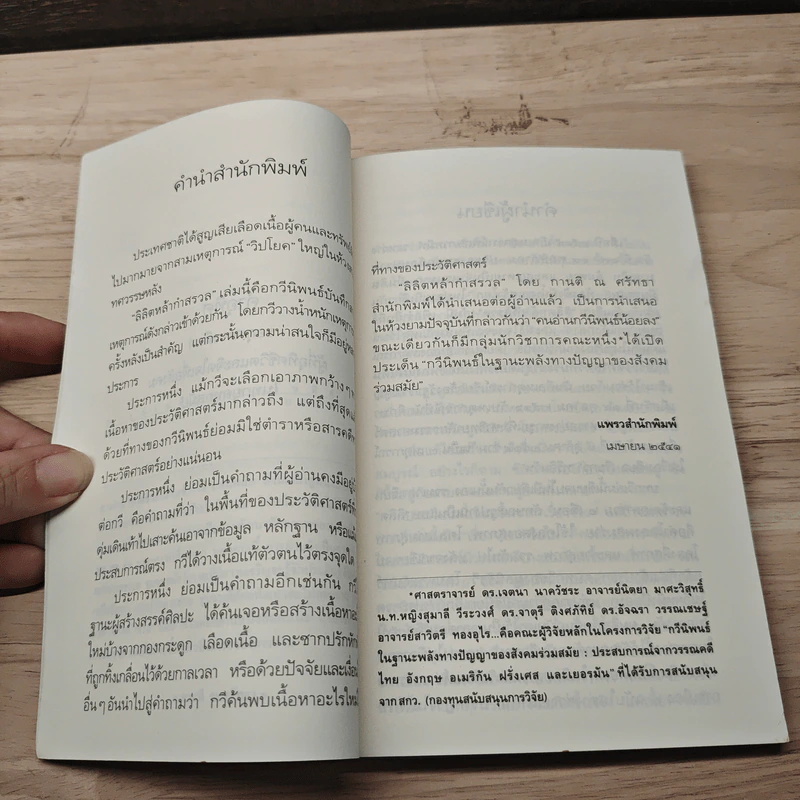 คำนำสำนักพิมพ์
ประเทศชาติได้สูญเสียเลือดเนื้อผู้คนและทรัพย์
ไปมากมายจากสามเหตุการณ์ "วิปโยค" ใหญ่ในห้วง
ทศวรรษหลัง
"ลิลิตหล้ากำสรวล" เล่มนี้คือกวีนิพนธ์บันทึก
เหตุการณ์ดังกล่าวเข้าด้วยกัน โดยกวีวางน้ำหนักเหตุการณ์
ครั้งหลังเป็นสำคัญ แต่กระนั้นความน่าสนใจก็มีอยู่
ประการ
ประการหนึ่ง แม้กวีจะเลือกเอาภาพกว้างๆ
เนื้อหาของประวัติศาสตร์มากล่าวถึง แต่ถึงที่สุด
ด้วยที่ทางของกวีนิพนธ์ย่อมมิใช่ตำราหรือสารคดี
ประวัติศาสตร์อย่างแน่นอน
ประการหนึ่ง ย่อมเป็นคำถามที่ผู้อ่านคงมีอยู่
ต่อกวี คือคำถามที่ว่า ในพื้นที่ของประวัติศาสตร์ที่
ดุ่มเดินเท้าไปเสาะค้นเอาจากข้อมูล หลักฐาน หรือ
ประสบการณ์ตรง กวีได้วางเนื้อแท้ตัวตนไว้ตรงจุดใด
ประการหนึ่ง ย่อมเป็นคำถามอีกเช่นกัน กวี
ฐานะผู้สร้างสรรค์ศิลปะ ได้ค้นเจอหรือสร้างเนื้อหา
ใหม่บ้างจากกองกระดูก เลือดเนื้อ และซากปรักหัก
ที่ถูกทิ้งเกลื่อนไว้ด้วยกาลเวลา หรือด้วยปัจจัยและเงื่อน
อื่นๆ อันนำไปสู่คำถามว่า กวีค้นพบเนื้อหาอะไรใหม่
ที่ทางของประวัติศาสตร์
"ลิลิตหล้ากำสรวล" โดย กานติ ณ ศรัทธา
สำนักพิมพ์ได้นำเสนอต่อผู้อ่านแล้ว เป็นการนำเสนอ
ในห้วงยามปัจจุบันที่กล่าวกันว่า "คนอ่านกวีนิพนธ์น้อยลง"
ขณะเดียวกันก็มีกลุ่มนักวิชาการคณะหนึ่ง* ได้เปิด
ประเด็น "กวีนิพนธ์ในฐานะพลังทางปัญญาของสังคม
ร่วมสมัย"
แพรวสำนักพิมพ์
เมษายน ๒๕๔๑
*ศาสตราจารย์ ดร.เจตนา นาควัชระ อาจารย์นิตยา มาศะวิสุทธิ์
น.ท.หญิงสุมาลี วีระวงศ์ ดร.จาตุรี ติงศภัทิย์ ดร.อัจฉรา วรรณเชษฐ์
อาจารย์สาวิตรี ทองอุไร...คือคณะผู้วิจัยหลักในโครงการวิจัย "กวีนิพนธ์
ในฐานะพลังทางปัญญาของสังคมร่วมสมัย : ประสบการณ์จากวรรณคดี
ไทย อังกฤษ อเมริกัน ฝรั่งเศส และเยอรมัน" ที่ได้รับการสนับสนุน
จาก สกว. (กองทุนสนับสนุนการวิจัย)